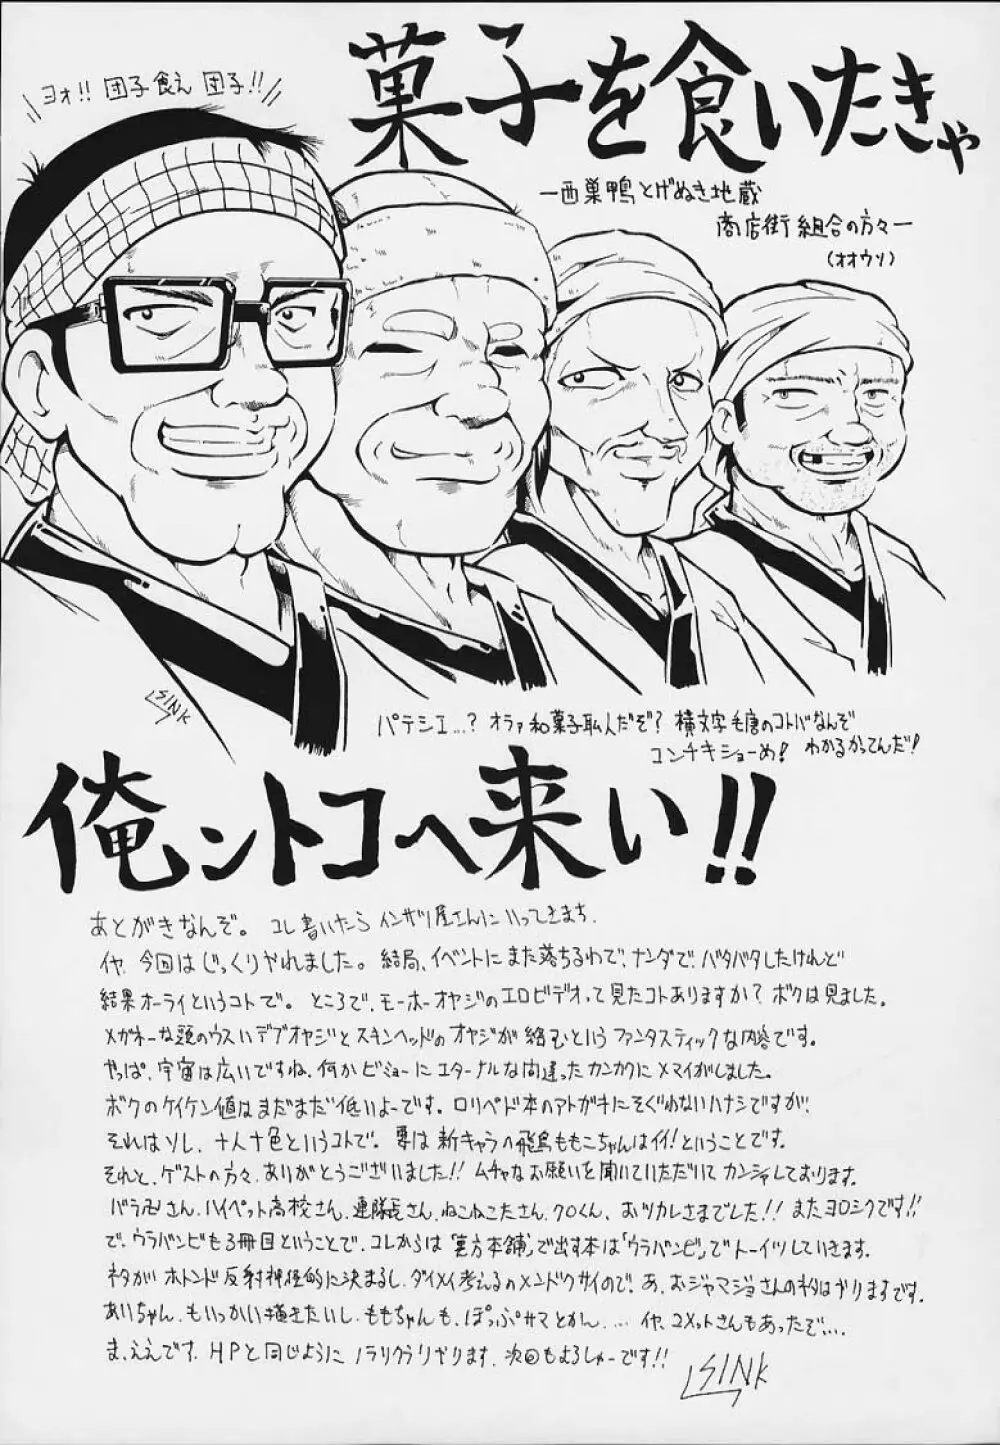 ヨォ!! 団子食え 団子!!
菓子を食いたきゃ
ー西巣鴨とげぬき地蔵
商店街組合の方々ー
(オオウソ)
SINK
パテシエ…? オラァ和菓子職人だぞ? 横文字毛唐のコトバなんぞ
コンチキショーめ! わかるかってんだ!
俺ントコへ来い!!
あとがきなんぞ。 コレ書いたら インサツ屋さんにいってきまち.
イヤ、今回はじっくりやれました。結局、イベントにまた落ちるわで、ナンダで、バタバタしたけれど
結果オーライというコトで。ところで、モーホーオヤジのエロビデオって見たコトありますか? ボクは見ました。
メガネーな頭のウスいデブオヤジとスキンヘッドのオヤジが絡むというファンタスティックな内容です。
やっぱ、宇宙は広いですね、何かビミョーにエターナルな間違ったカンカクにメマイがしました。
ボクのケイケン値はまだまだ低いよーです。ロリペド本のアトガキにそぐわないハナシですが、
それはソレ、十人十色というコトで。要は新キャラの飛鳥ももこちゃんはイイ!ということです。
それと、ゲストの方々、ありがとうございました!! ムチャなお願いを聞いていただいてカンシャしております。
バラ さん、ハイペット高校さん、連隊長さん、ねこねこたさん、クロくん、おツカレさまでした!! またヨロシクです!!
で、ウラバンビも3冊目ということで、コレからは「裏方本舗」で出す本は「ウラバンビ」でトーイツしていきます。
ネタがホトンド反射神経的に決まるし、ダイメイ考えるのメンドクサイので、あ、おジャマジョさんのネタはやりますです。
あいちゃん、もいっかい描きたいし、ももちゃんも、ぽっぷサマとかん、… イヤ、ユメットさんもあったぞ…、
ま、ええです。HPと同じようにノラリクラリやります、次回もよろしゅーです!!
SINK